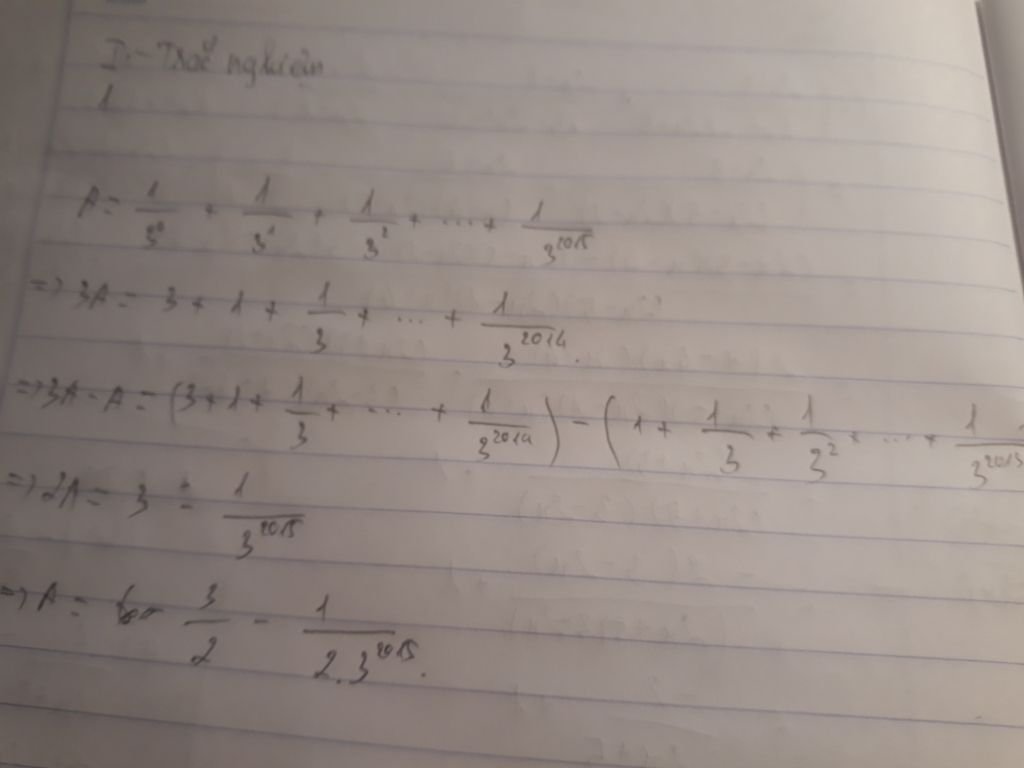 I. Trắc nghiệm
1
A = 1/3^0 + 1/3^1 + 1/3^2 + ... + 1/3^2015
=> 3A = 3 + 1 + 1/3 + ... + 1/3^2014.
=> 3A - A = (3 + 1 + 1/3 + ... + 1/3^2014) - (1 + 1/3 + 1/3^2 + ... + 1/3^2015
=> 2A = 3 - 1/3^2015
=> A = 3/2 - 1/2.3^2015.